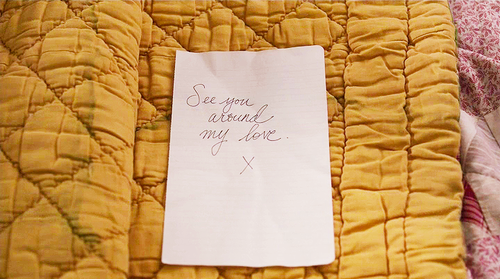 See you
around
my love.
X